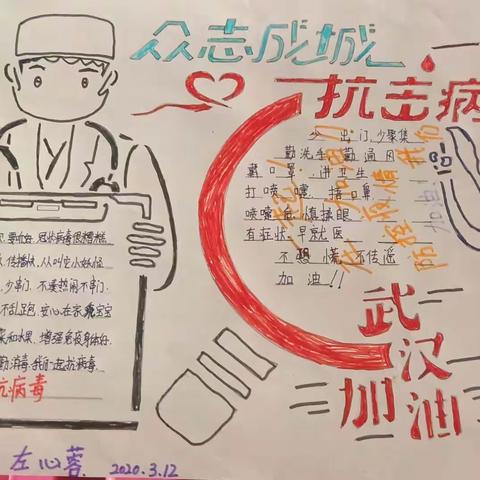 众志成城
抗击病
少出门,少聚集
勤洗手 勤通风
戴口罩 讲卫生
打喷嚏 捂口鼻
喷嚏后 慎揉眼
有症状 早就医
不恐慌 不信谣
加油!!
武汉
加油
要听话,冠状病毒很糟糕
传播快,从叫它小妖怪
少串门,不凑热闹不串门
不乱跑,安心在家乖宝宝
菜和水果,增强免疫身体好
勤消毒,我们一起抗病毒
抗病毒
左心蓉
2020.3.12